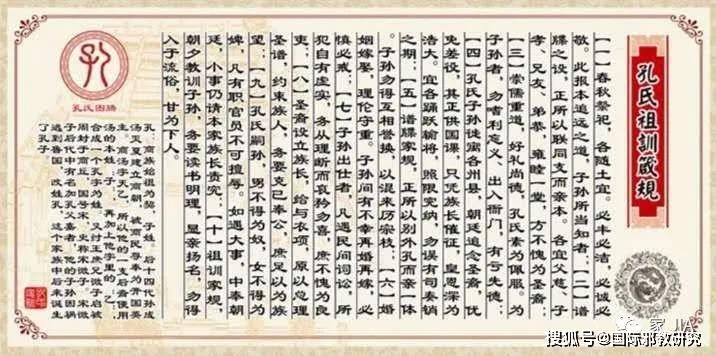 孔氏祖訓箴規
【一】春秋祭祀，各随土宜。必丰必洁，必诚必
敬。此报本追远之道，子孙所当知者；【二】谱
牒之设，正所以联同支而亲本。各宜父慈子
孝、兄友、弟恭，雍睦一堂，方不愧为圣裔；
【三】崇儒重道，好礼尚德，孔氏素为佩服。为
子孙者，勿者利忘义，出入衙门，有亏先德；
【四】孔氏子孙徙寓各州县，朝廷追念圣裔，优
免差役，其正供国课，只凭族长催征，皇恩深为
浩大。宜各踊跃输将，照限完纳，勿误有司奏销
之期；【五】谱牒家规，正所以别外孔而亲一体
。子孙勿得互相誉换，以混来历宗枝；【六】婚
姻嫁娶，理伦守重。子孙间有不幸再婚再嫁，必
慎必戒；【七】子孙出仕者，凡遇民间词讼，所
犯自有虚实，务从理断而哀矜勿喜，庶不愧为良
吏；【八】圣裔设立族长，给与衣项，原以总理
圣谱，约束族人，务要克己奉公，庶足以为族
望；【九】孔氏嗣孙，男不得为奴，女不得为
婢，凡有职官员不可擅辱。如遇大事，申奏朝
廷，小事仍请本家族长责究；【十】祖训家规，
朝夕教训子孙，务要读书明理，显亲扬名，勿得
入于流俗，甘为下人。
孔氏图腾
孔：商族始祖为契，子姓。后十四代孙成
汤灭夏建立商朝，被商民尊奉为开国英
主。商汤字天乙，所以他的一支后裔便用
汤的本姓“子”，再加上他字里的“乙”，
合成一个孔字为姓。又纣王庶兄微子启被
周封于商丘，国号宋，史称宋微子。宋微
子后代中有名孔父嘉者，他的子孙因祸
逃到鲁国，改姓孔。这个家族中后来诞生
了孔子。
搜狐号@国际邪教研究